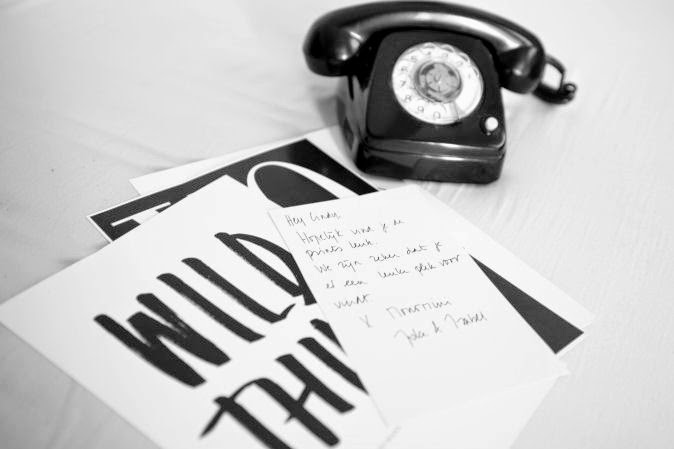 Hey Cindy,
Hopelijk vind je de
prints leuk.
We zijn zeker dat je
er een leuke plek voor
vindt
x Monotrum
&
WILD
THI